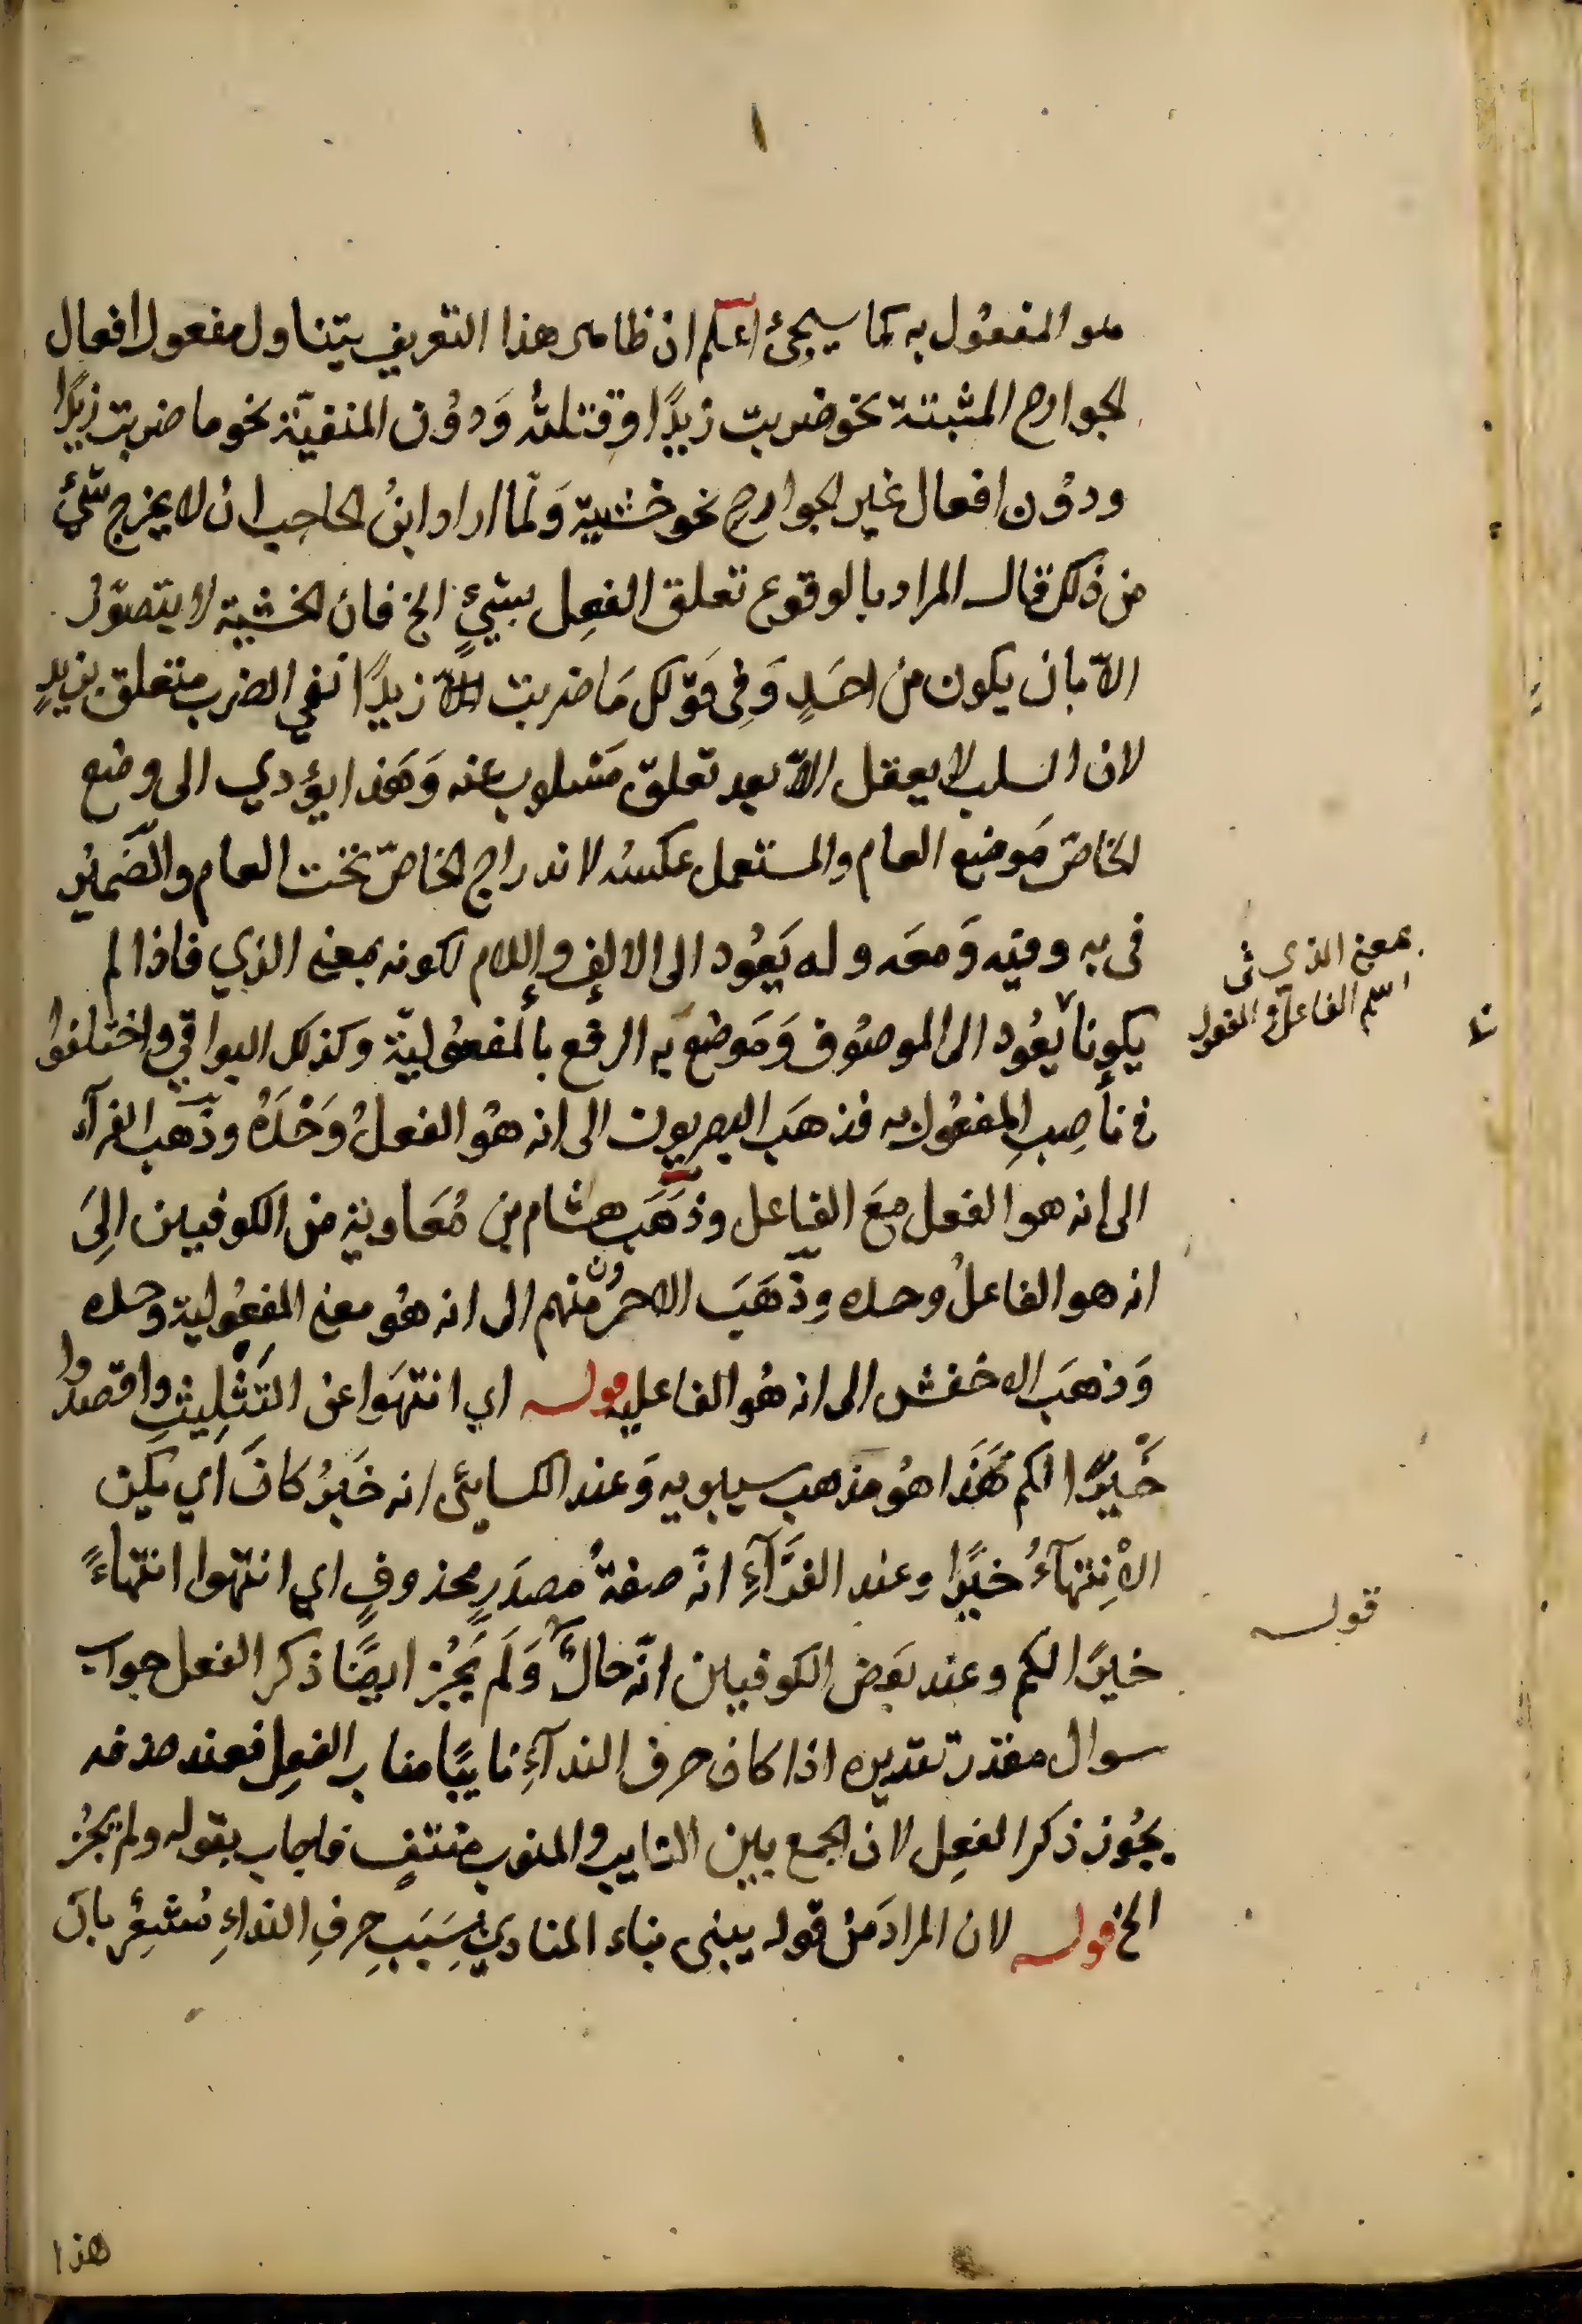 هو المفعُول به كما سيجئ اعلم ان ظاهر هذا التعريف يتناول مفعول افعال
الجوارح المثبتة نحو ضربت زيدًا وقتلتُه وَدوُن المنفيّة نحو ما ضربت زيدًا
ودوُن افعال غير الجوارح نحو خشيته وَلمّا اراد ابنُ الحاجب ان لا يخرج شيئ
من ذلك قال المراد بالوقوع تعلق الفعِل بشيئٍ الخ فان الخشية لا يتصوّر
الاّ بان يكون من احَدٍ وَفِى قوَلك مَا ضربت الاّ زيدًا نفي الضرب متعلق بزيدٍ
لان السلب لا يعقل الاّ بعد تعلق مَسلوب عنه وَهَذا يؤدي الى وضع
الخاصّ مَوضع العام والمستعمل عكسه لاندراج الخاصّ تحت العام والضَّميُر
فى به وفيه وَمعَه وله يَعُود الى الالف واللام لكونه بمعنى الذي فاذا لم
يكونا يعُود الى الموصُوف وَمَوضع به الرفع بالمفعُوليّة وكذلك البواقي واختلفوُا
فى ناصِبِ المفعُول به فذهَبَ البصريون الى انه هُو الفعلُ وَحْدَهُ وذهَب الفرآء
الى انه هو الفعل معَ الفاعل وذهَبَ هشام بن مُعَاوية من الكوفيين الِىَ
انه هو الفاعلُ وحده وذَهَبَ الاحمرُون منهم الى انه هُو معنى المفعُولية وحده
وَذهبَ الاخفش الى انه هُو الفاعليه قوله اي انتهَوا عن التَثْلِيثِ واقصدُوا
خَيْرًا لكم هَذَا هُو مَذهب سيبويه وَعند الكسايئ انه خَبرُ كانَ اي يكن
الْاِنتِهَآءُ خيرًا وعند الفَرَّآءِ انّه صفةُ مصدَرٍ محذوفٍ اي انتهوا انتهاءً
خيرًا لكم وعند بعَض الكوفيين انّه حالٌ وَلَم يَجُز ايضًا ذكر الفعل جواب
سوال مقدر تقديره اذا كان حرف الندآءِ نايبًا مناب الفعِل فعند حذفه
يجُوز ذكر الفعِل لان الجمع بين النايب والمنوب منتفٍ فاجاب بقوله ولم يجُز
الخ قوله لان المرادَ منْ قوله يبنى بناء المنادي بِسَبَبِ حرفِ النداءِ مُشعِر بان
بمعنى الذي فى
اسم الفاعل والمفعول
قوله
هذا